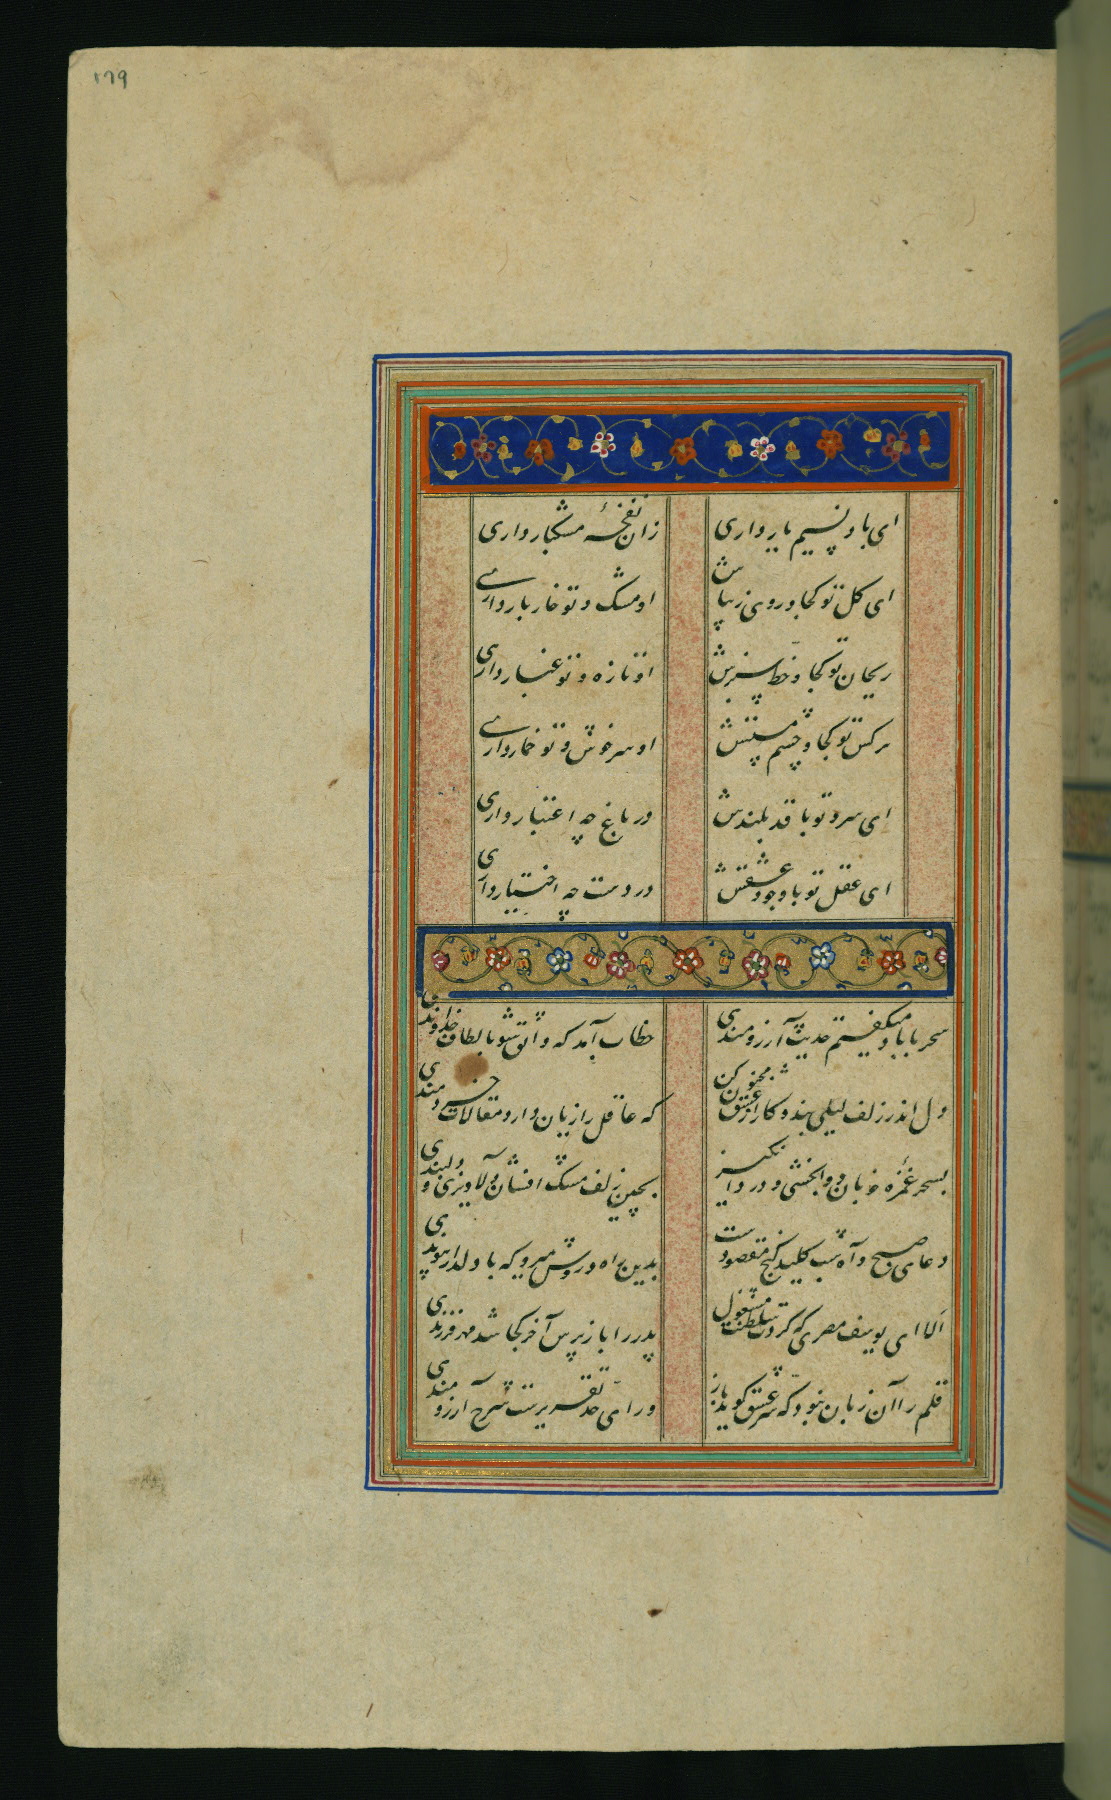 ای باد نسیم یار داری زان نفخهٔ مشکبار داری
ای کل تو کجا و روی زیباش او مشک و تو خار بار داری
ریحان تو کجا و خط سبزش او تازه و تو غبار داری
نرکس تو کجا و چشم مستش او سرخوش و تو خمار داری
ای سرو تو با قد بلندش در باغ چه اعتبار داری
ای عقل تو با وجود عشقش در دست چه اختیار داری
سحر با باد میکفتم حدیث آرزومندی خطاب آمد که واثق شو بالطاف خداوندی
دل اندر زلف لیلی بند و کار از عشق مجنون کن که عاقل را زیان دارد مقالات خردمندی
بسحر غمزهٔ خوبان دوا بخشی و درد انکیز بچین زلف مشک افشان دلاویزی و دلبندی
دعای صبح و آه شب کلید کنج مقصودست بدین راه و روش میرو که با دلدار پیوندی
الا ای یوسف مصری که کردت سلطنت مشغول پدر را باز پرس آخر کجا شد مهر فرزندی
قلم را آن زبان نبود که سرّ عشق کوید باز ورای حدّ تقریرست شرح آرزومندی